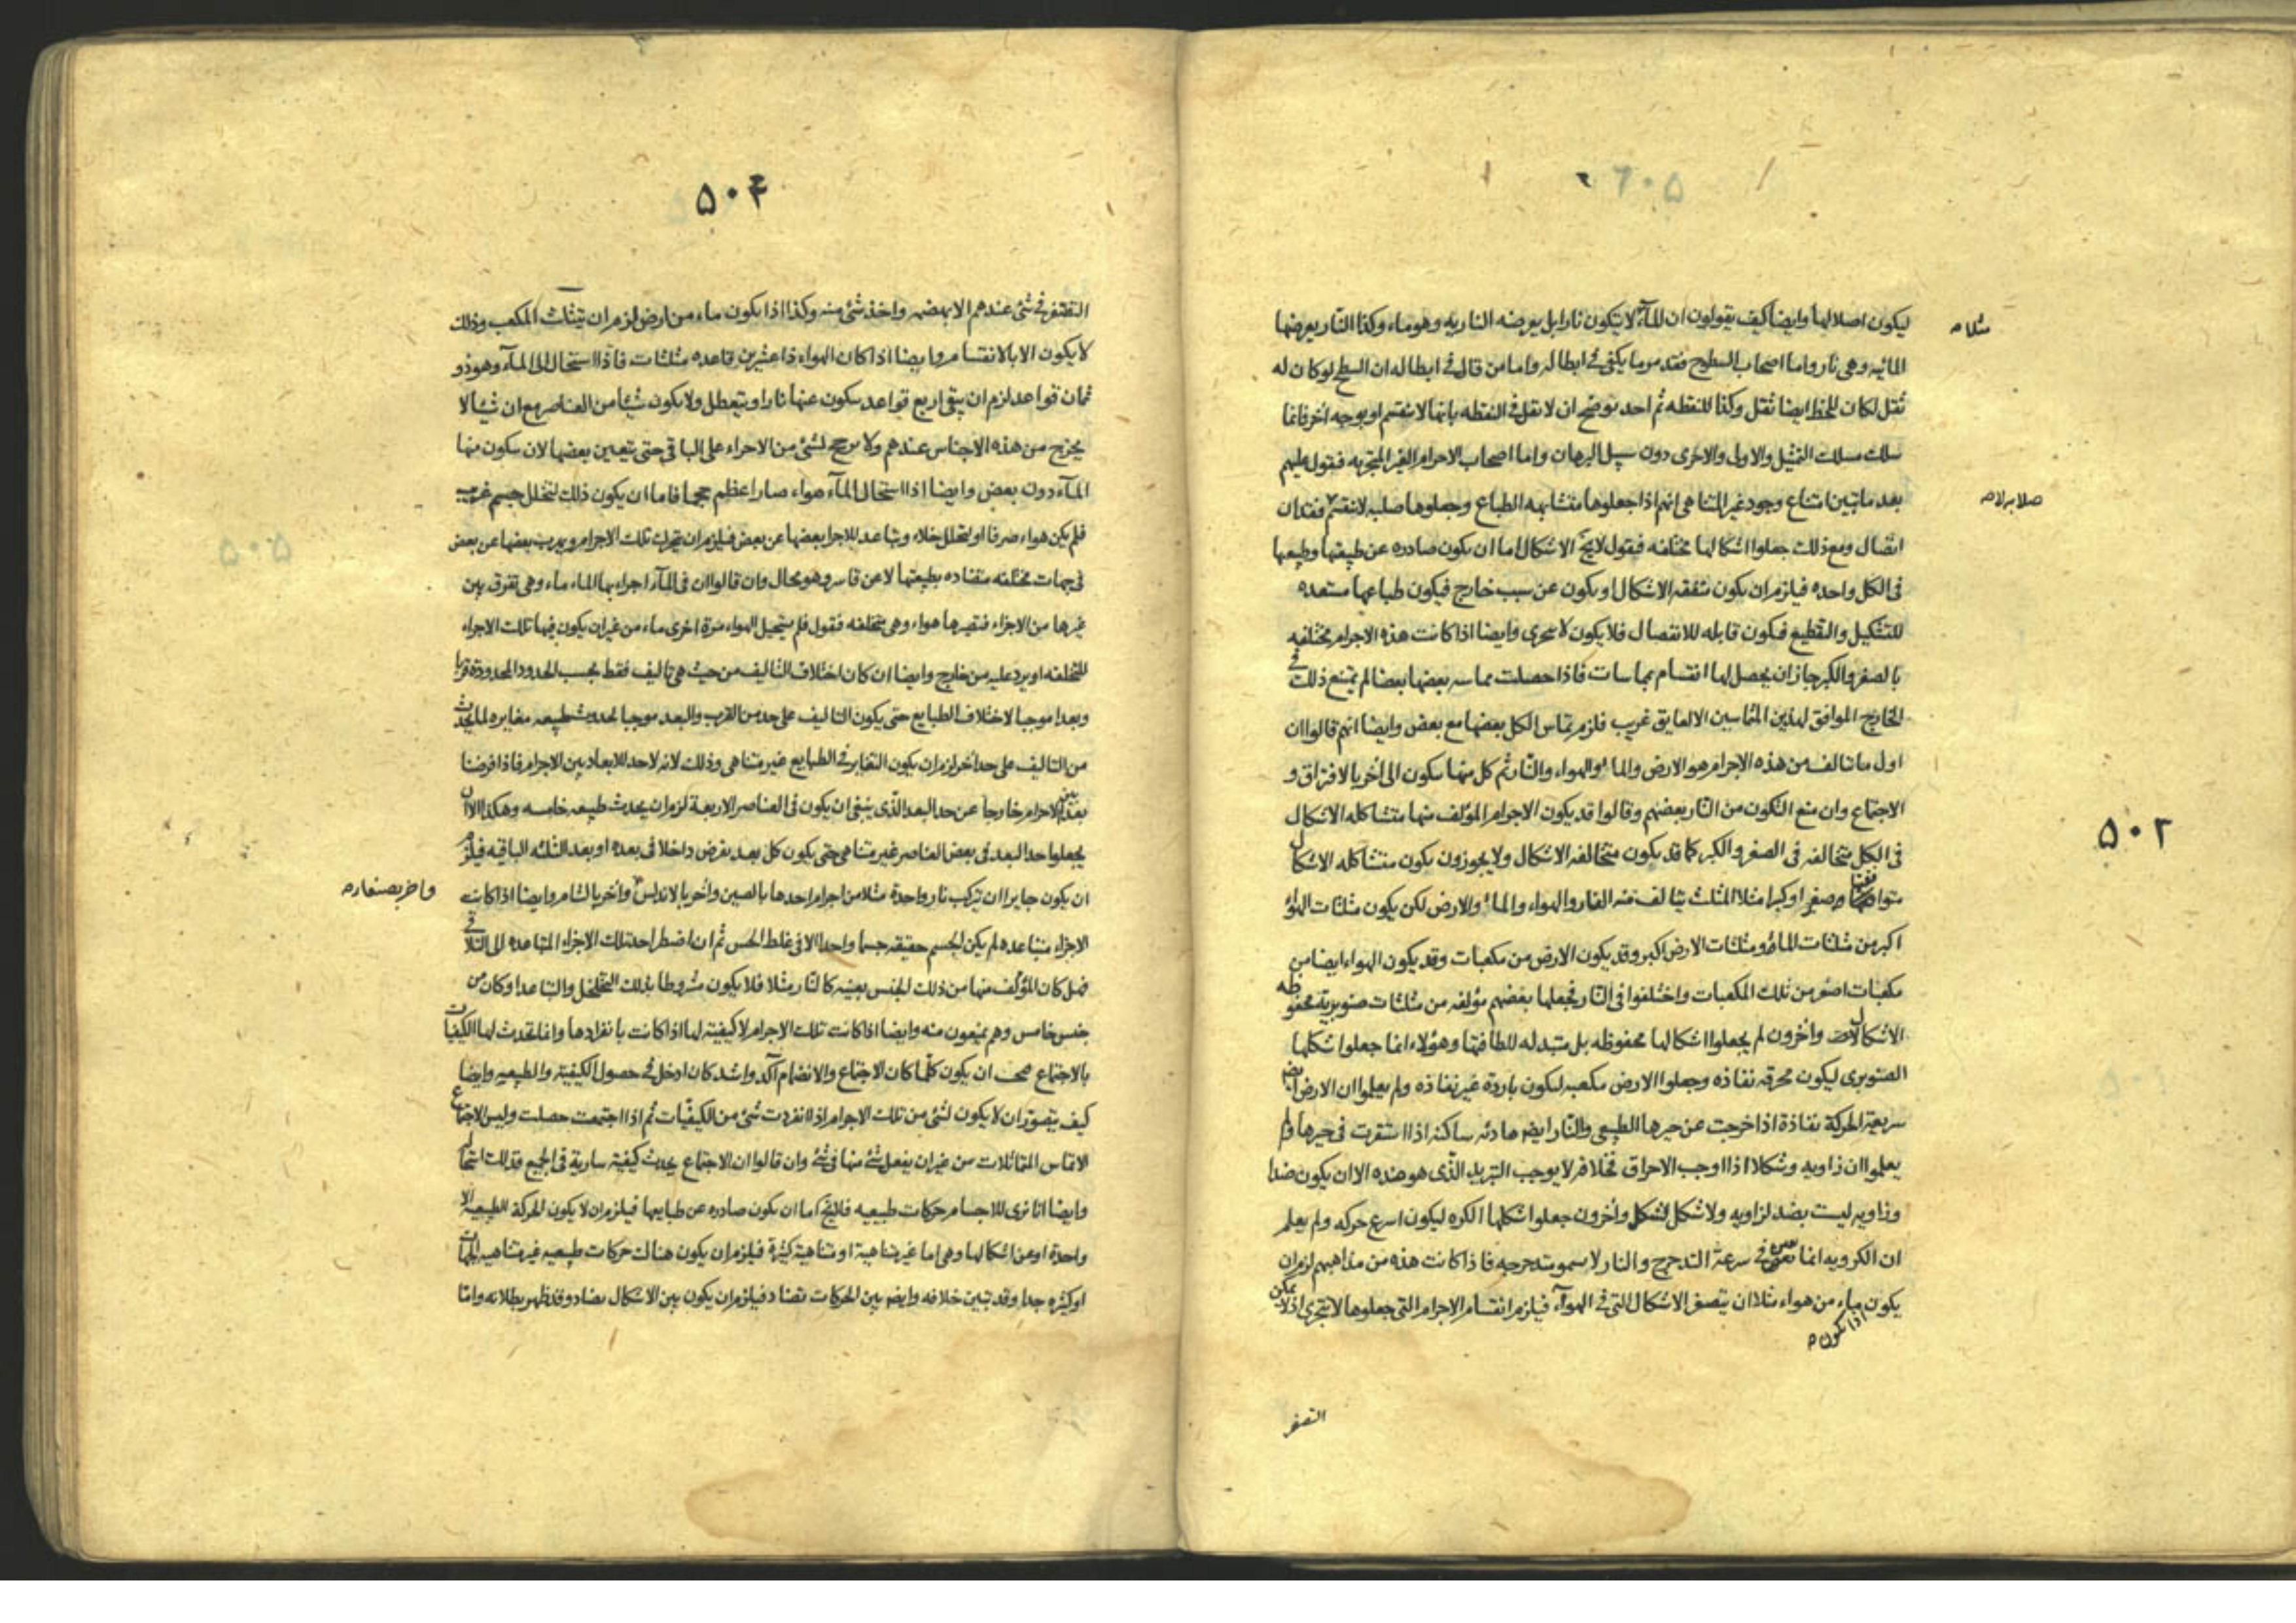 ليكون اصلا لها وايضا كيف يقولون ان الماء لا يتكون نارا بل يعرضه الناريه وهو ماء وكذا النار يعرضها
مثلا ص
المائيه وهى نار واما اصحاب السطوح فقد مر ما يكفى فى ابطاله واما من قال فى ابطاله ان السطح لو كان له
ثقل لكان للخط ايضا ثقل وكذا للنقطه ثم احد يوضح ان لا ثقل فى النقطه بانها لا تنقسم او بوجه اخر فانما
سلك مسلك التمثيل والاولى والاحرى دون سبيل البرهان واما اصحاب الاجرام الغير المتجزيه فنقول عليهم
بعد ما تبين امتناع وجود غير المتناهى انهم اذا جعلوها متشابهه الطباع وجعلوها صلبه لا تنقسم فقدان
اتصال ومع ذلك جعلوا اشكالها مختلفه فنقول لا يخ الاشكال اما ان يكون صادره عن طبيعتها وطبيعها
فى الكل واحده فيلزم ان يكون متفقه الاشكال او يكون عن سبب خارج فيكون طباعها مستعده
للتشكيل والتقطيع فيكون قابله للانفصال فلا يكون لا تتجزى وايضا اذا كانت هذه الاجرام مختلفه
بالصغر والكبر جاز ان يحصل لها انقسام بمماسات فاذا حصلت مماسه بعضها بعضا لم يمتنع ذلك فى
الخارج الموافق لهذين المتماسين الا لعايق غريب فلزم تماس الكل بعضها مع بعض وايضا انهم قالوا ان
اول ما تتالف من هذه الاجرام هو الارض والماء والهواء والنار ثم كل منها يتكون الى اخر بالافتراق و
الاجتماع وان منع التكون من النار بعضهم وقالوا قد يكون الاجرام المؤلف منها متشاكله الاشكال
فى الكل متخالفه فى الصغر والكبر كما قد يكون متخالفه الاشكال ولا يجوزون يكون متشاكله الاشكال
صغرا وكبرا مثلا المثلث يتالف منه النار والهواء والماء والارض لكن يكون مثلثات الهواء
اكبر من مثلثات الماء ومثلثات الارض اكبر وقد يكون الارض من مكعبات وقد يكون الهواء ايضا من
مكعبات اصغر من تلك المكعبات واختلفوا فى النار فجعلها بعضهم مؤلفه من مثلثات صنوبرية محفوظه
الاشكال واخرون لم يجعلوا اشكالها محفوظه بل متبدله للطافتها وهؤلاء انما جعلوا شكلها
الصنوبرى ليكون محرقه نفاذه وجعلوا الارض مكعبه ليكون باردة غير نفاذه ولم يعلموا ان الارض ايض
سريعة الحركة نفاذة اذا خرجت عن حيزها الطبيعى والنار ايض هادئه ساكنه اذا استقرت فى حيزها ولم
يعلموا ان زاويه وشكلا اذا اوجب الاحراق فخلافه لا يوجب التبريد الذى هو ضده الا ان يكون ضدا
وزاويه ليست بضد لزاويه ولا شكل لشكل واخرون جعلوا شكلها الكره ليكون اسرع حركه ولم يعلم
ان الكرويه انما تعين فى سرعة التدحرج والنار لا تسمو متدحرجه فاذا كانت هذه من مذاهبهم لزم ان
يكون ماء من هواء مثلا ان يتصغر الاشكال التى فى الهواء فيلزم انقسام الاجرام التى جعلوها لا تتجزى اذ لا يمكن
اذا تكون ص
التصغر
صلابه لا ص
۵۰۲
۵۰۴
التصغر فى شئ عندهم الا بهضمه واخذ شئ منه وكذا اذا يكون ماء من ارض لزم ان تيثلث المكعب وذلك
لا يكون الا بالانقسام وايضا اذا كان الهواء ذا عشرين قاعده مثلثات فاذا استحال الى الماء وهو ذو
ثمان قواعد لزم ان يبقى اربع قواعد يتكون عنها نارا ويتعطل ولا يكون شيئا من العناصر مع ان شيئا لا
يخرج من هذه الاجناس عندهم ولا مرجح لشئ من الاجزاء على الباقى حتى يتعين بعضها لان يتكون منها
الماء دون بعض وايضا اذا استحال الماء هواء صار اعظم حجما فاما ان يكون ذلك لتخلل جسم غريب
فلم يكن هواء صرفا او لتخلل خلاء وتباعد للاجزاء بعضها عن بعض فيلزم ان يتحرك تلك الاجرام ويهرب بعضها عن بعض
فى جهات مختلفه متضاده بطبيعتها لا عن قاسر وهو محال وان قالوا ان فى الماء اجزاء بها الماء ماء وهى تفرق بين
غيرها من الاجزاء فتصيرها هواء وهى متخلفه فنقول فلم يستحيل الهواء مرة اخرى ماء من غير ان يكون فيها تلك الاجزاء
المتخلفه او يرد عليه من خارج وايضا ان كان اختلاف التاليف من حيث هى تاليف فقط بحسب الحدود المحدودة قربا
وبعدا موجبا لاختلاف الطبايع حتى يكون التاليف على حد من القرب والبعد موجبا لحدوث طبيعه مغايره لما يحدث
من التاليف على حد اخر لزم ان يكون التغاير فى الطبايع غير متناهى وذلك لانه لا حد للابعاد بين الاجرام فاذا فرضنا
بعد بين الاجرام خارجا عن حد البعد الذى ينبغى ان يكون فى العناصر الاربعة لزم ان يحدث طبيعه خامسه وهكذا الا ان
يجعلوا حد البعد فى بعض العناصر غير متناهى حتى يكون كل بعد يفرض داخلا فى بعده او بعد الثلثه الباقيه فيلزم
ان يكون جايزا ان يتركب نار واحدة مثلا من اجرام احدها بالصين واخر بالاندلس واخر بالشام وايضا اذا كانت
واخر بصنعاء ص
الاجزاء متباعده لم يكن الجسم حقيقه جسما واحدا الا فى غلط الحس ثم ان اضطر احد تلك الاجزاء المتباعده الى التلاقى
فهل كان المؤلف منها من ذلك الجنس بعينه كالنار مثلا فلا يكون مشروطا بذلك التخلخل والتباعد او كان من
جنس خامس وهم يمنعون منه وايضا اذا كانت تلك الاجرام لا كيفية لها اذا كانت بانفرادها وانما تحدث لها الكيفيات
بالاجتماع صح ان يكون كلما كان الاجتماع والانضمام آكد واشد كان ادخل فى حصول الكيفية والطبيعيه وايضا
كيف يتصور ان لا يكون لشئ من تلك الاجرام اذا انفردت شئ من الكيفيات ثم اذا اجتمعت حصلت وليس الاجتماع
الا تماس المتماثلات من غير ان ينفعل شئ منها فى شئ وان قالوا ان الاجتماع يحدث كيفية سارية فى الجميع فذلك
وايضا انا نرى للاجسام حركات طبيعيه فلا يخ اما ان يكون صادره عن طبايعها فيلزم ان لا يكون الحركة الطبيعية الا
واحدة او عن اشكالها وهى اما غير متناهية او متناهية كثيرة فيلزم ان يكون هناك حركات طبيعيه غير متناهيه
او كثيره جدا وقد تبين خلافه وايض بين الحركات تضاد فيلزم ان يكون بين الاشكال تضاد وقد ظهر بطلانه واما